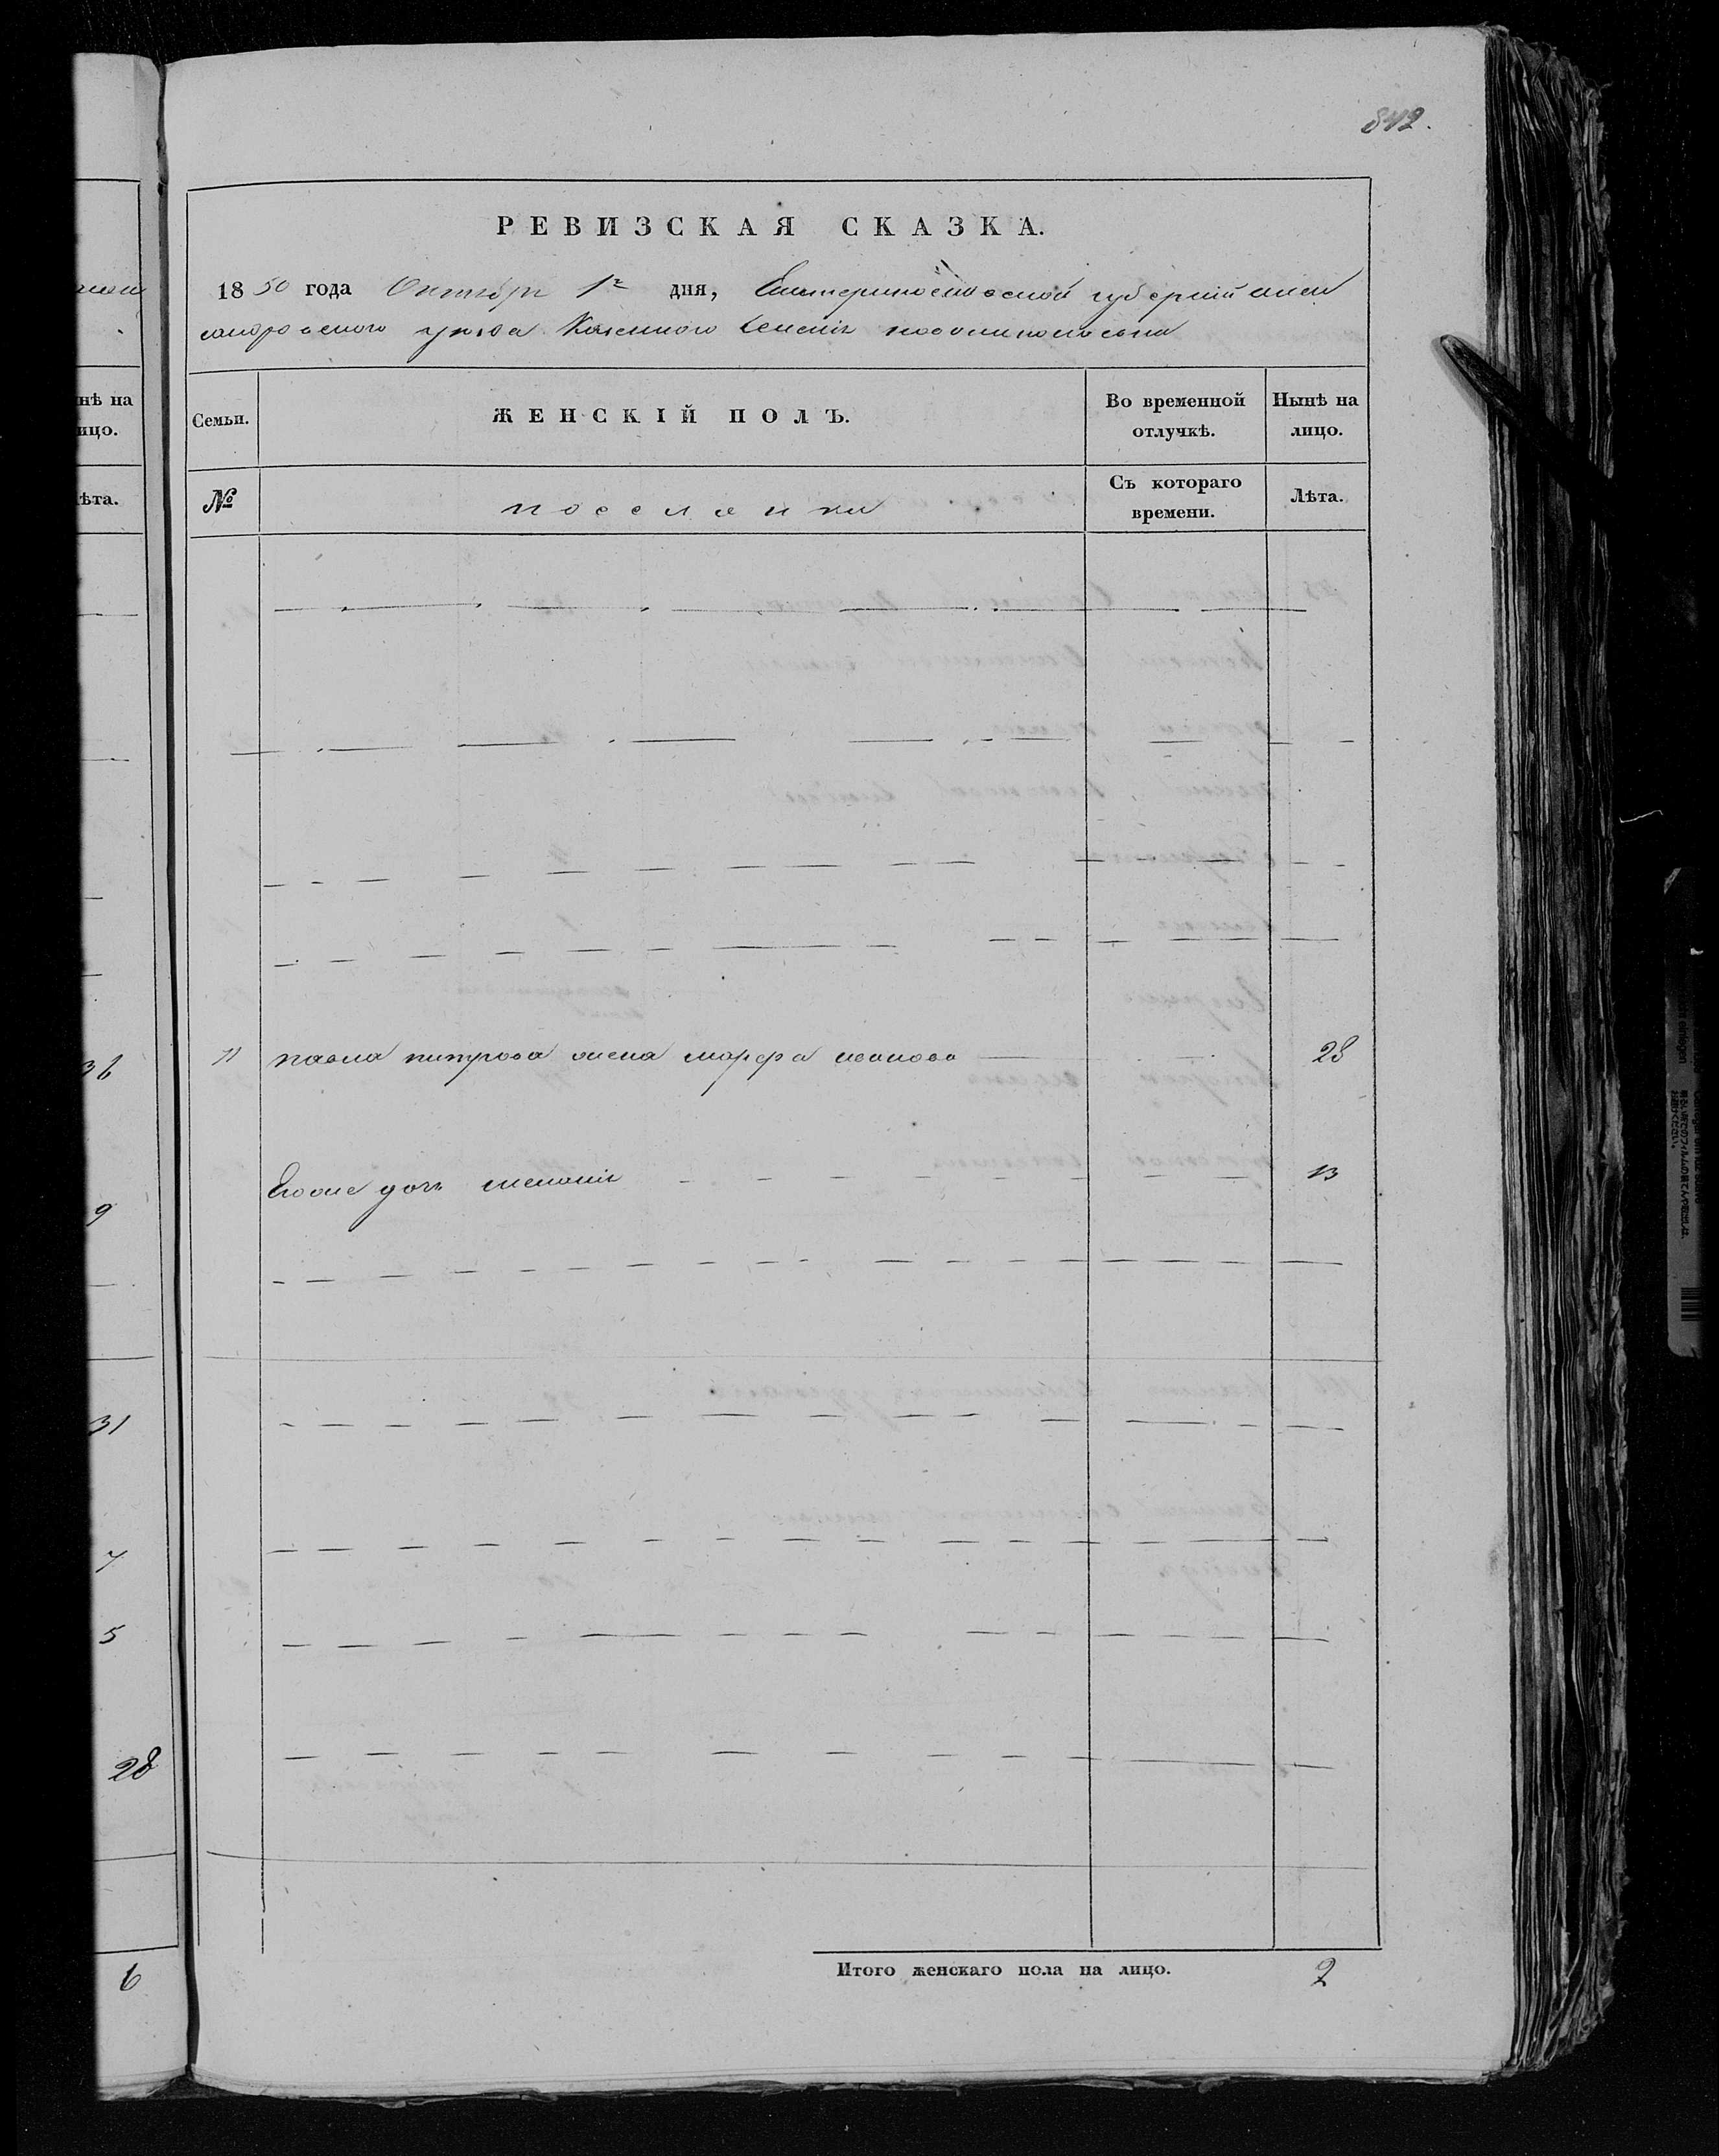 842.
РЕВИЗСКАЯ СКАЗКА.
1850 года Октября 1го дня, Екатеринославской губерніи Алек
сандровского уезда Казенного селенія
Семьи.
ЖЕНСКІЙ ПОЛЪ.
Во временной отлучкѣ.
Нынѣ на лицо.
№
поселянки
Съ котораго времени.
Лѣта.
павла петрова жена марфа иванова 28
Егоже дочь меланія 13
Итого женскаго пола на лицо. 2
нѣ на
ицо.
ѣта.
36
9
31
7
5
28
6